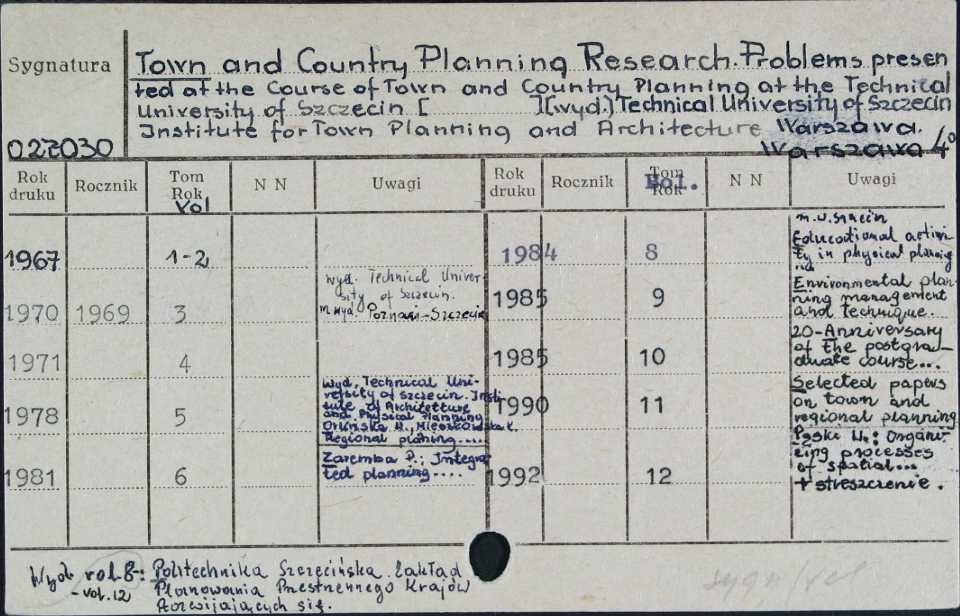 Sygnatura
Town and Country Planning Research. Problems presen
ted at the Course of Town and Country Planning at the Technical
University of Szczecin [ ] (wyd.) Technical University of Szczecin
Institute for Town Planning and Architecture Warszawa.
027030 Warszawa 4°
Rok druku Rocznik Tom Rok Vol N N Uwagi Rok druku Rocznik Tom Rok Vol. N N Uwagi
1967 1-2
1970 1969 3 wyd. Technical Univer-
sity of Szczecin.
m. wyd. Poznań-Szczecin
1971 4
1978 5 Wyd. Technical Uni-
versity of Szczecin. Insti-
tute of Architetture
and Physical Planning
Orlińska H.,
Regional planing....
1981 6 Zaremba P.: Integra-
ted planning....
1984 8 m.w. Szczecin
Educational activi-
ty in physical planing
1985 9 Environmental plan-
ning management
and technique.
1985 10 20-Anniversary
of the postgra-
duate course...
1990 11 Selected papers
on town and
regional planning
1992 12 Organi-
zing processes
of spatial...
+ streszczenie.
Wyd. vol. 8-: Politechnika Szczecińska. Zakład
- vol. 12 Planowania Przestrzennego Krajów
Rozwijających się.
sygn/vol